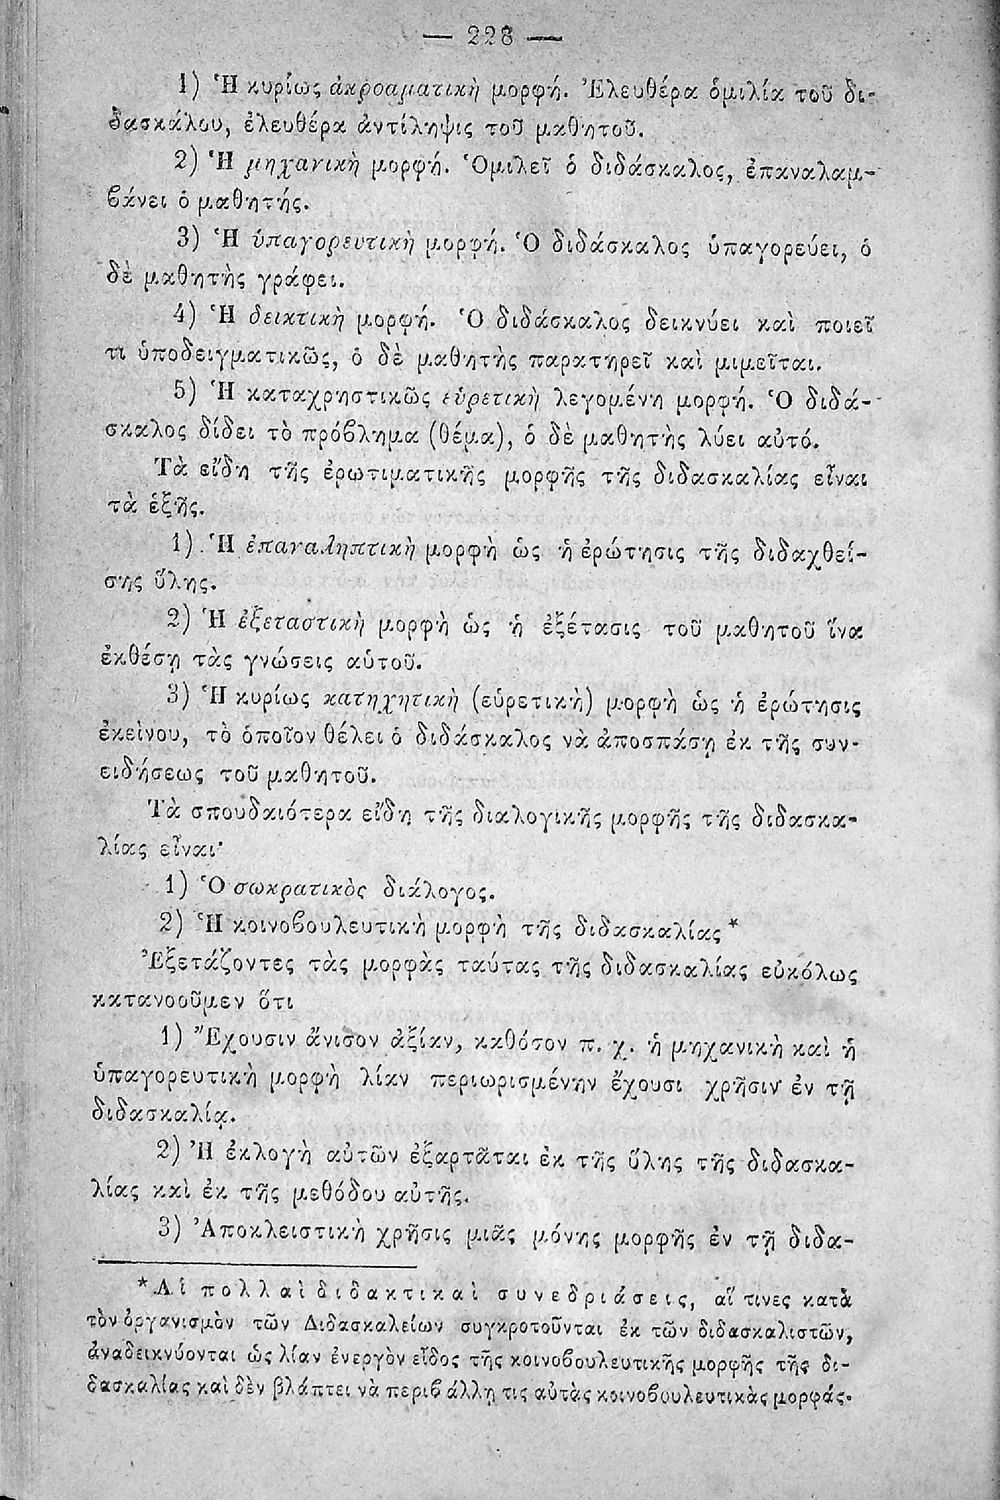 — 228 —
1) Ἡ κυρίως ἀκροαματικὴ μορφή. Ἐλευθέρα ὁμιλία τοῦ δι-
δασκάλου, ἐλευθέρα ἀντίληψις τοῦ μαθητοῦ.
2) Ἡ μηχανικὴ μορφή. Ὁμιλεῖ ὁ διδάσκαλος, ἐπαναλαμ-
βάνει ὁ μαθητής.
3) Ἡ ὑπαγορευτικὴ μορφή. Ὁ διδάσκαλος ὑπαγορεύει, ὁ
δὲ μαθητὴς γράφει.
4) Ἡ δεικτικὴ μορφή. Ὁ διδάσκαλος δεικνύει καὶ ποιεῖ
τι ὑποδειγματικῶς, ὁ δὲ μαθητὴς παρατηρεῖ καὶ μιμεῖται.
5) Ἡ καταχρηστικῶς εὑρετικὴ λεγομένη μορφή. Ὁ διδά-
σκαλος δίδει τὸ πρόβλημα (θέμα), ὁ δὲ μαθητὴς λύει αὐτό.
Τὰ εἴδη τῆς ἐρωτιματικῆς μορφῆς τῆς διδασκαλίας εἶναι
τὰ ἑξῆς.
1) Ἡ ἐπαναληπτικὴ μορφὴ ὡς ἡ ἐρώτησις τῆς διδαχθεί-
σης ὕλης.
2) Ἡ ἐξεταστικὴ μορφὴ ὡς ἡ ἐξέτασις τοῦ μαθητοῦ ἵνα
ἐκθέσῃ τὰς γνώσεις αὑτοῦ.
3) Ἡ κυρίως κατηχητικὴ (εὑρετικὴ) μορφὴ ὡς ἡ ἐρώτησις
ἐκείνου, τὸ ὁποῖον θέλει ὁ διδάσκαλος νὰ ἀποσπάσῃ ἐκ τῆς συν-
ειδήσεως τοῦ μαθητοῦ.
Τὰ σπουδαιότερα εἴδη τῆς διαλογικῆς μορφῆς τῆς διδασκα-
λίας εἶναι·
1) Ὁ σωκρατικὸς διάλογος.
2) Ἡ κοινοβουλευτικὴ μορφὴ τῆς διδασκαλίας *
Ἐξετάζοντες τὰς μορφὰς ταύτας τῆς διδασκαλίας εὐκόλως
κατανοοῦμεν ὅτι
1) Ἔχουσιν ἄνισον ἀξίαν, καθόσον π. χ. ἡ μηχανικὴ καὶ ἡ
ὑπαγορευτικὴ μορφὴ λίαν περιωρισμένην ἔχουσι χρῆσιν ἐν τῇ
διδασκαλίᾳ.
2) Ἡ ἐκλογὴ αὐτῶν ἐξαρτᾶται ἐκ τῆς ὕλης τῆς διδασκα-
λίας καὶ ἐκ τῆς μεθόδου αὐτῆς.
3) Ἀποκλειστικὴ χρῆσις μιᾶς μόνης μορφῆς ἐν τῇ διδα-
* Αἱ πολλαὶ διδακτικαὶ συνεδριάσεις, αἵ τινες κατὰ
τὸν ὀργανισμὸν τῶν Διδασκαλείων συγκροτοῦνται ἐκ τῶν διδασκαλιστῶν,
ἀναδεικνύονται ὡς λίαν ἐνεργὸν εἶδος τῆς κοινοβουλευτικῆς μορφῆς τῆς δι-
δασκαλίας καὶ δὲν βλάπτει νὰ περιβάλλῃ τις αὐτὰς κοινοβουλευτικὰς μορφάς.